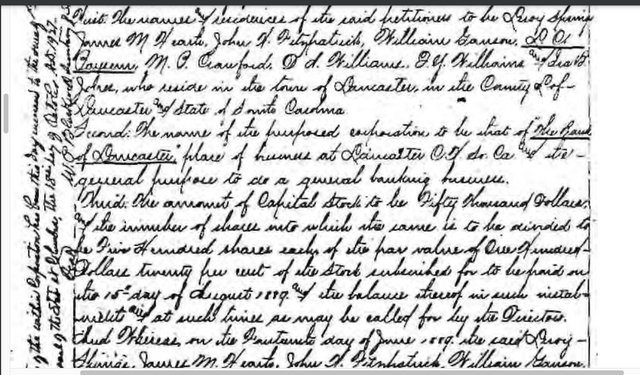 First: The names and residences of the said petitioners to be Leroy Springs
James M Heath, John H. Fitzpatrick, William Ganson,
M. P. Crawford, D. A. Williams, E. Y. Williams and Ira B.
Jones, who reside in the town of Lancaster, in the County of
Lancaster and State of South Carolina
Second: The name of the proposed corporation to be that of "The Bank
of Lancaster" place of business at Lancaster C.H. So. Ca. and its
general purpose to do a general banking business.
Third: The amount of Capital Stock to be Fifty Thousand Dollars
and the number of shares into which the same is to be divided to
be Five Hundred shares each of the par value of One Hundred
Dollars twenty per cent of the Stock subscribed for to be paid on
the 15th day of August 1889. and the balance thereof in such instal-
ments and at such times as may be called for by the Directors.
And Whereas, on the Fourteenth day of June 1889. the said Leroy
Springs, James M. Heath, John H. Fitzpatrick, William Ganson,